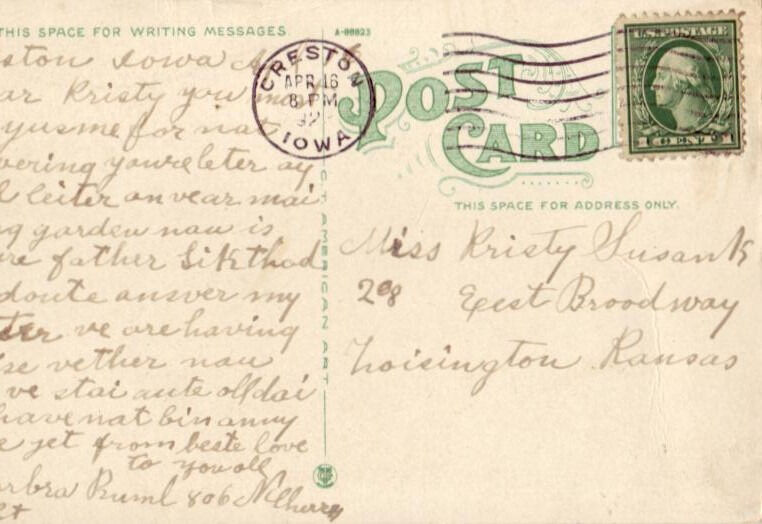 THIS SPACE FOR WRITING MESSAGES.
A-00823
ston Iowa
ar Kristy you mos
yusme for nat
vering youre leter ay
leiter on vear mai
g garden nau is
re father Sikthad
doute answer my
ter ve are having
ise vether nau
ve stai aute oll dai
have nat bin anny
e yet from beste love
to you oll
rbra Ruml 806 N Cherry
st
CRESTON
APR 16
8 PM
192
IOWA
POST
CARD
U.S. POSTAGE
1 CENT 1
THIS SPACE FOR ADDRESS ONLY.
Miss Kristy Susank
208 Eest Broodway
Hoisington Kansas
OF AMERICAN ART